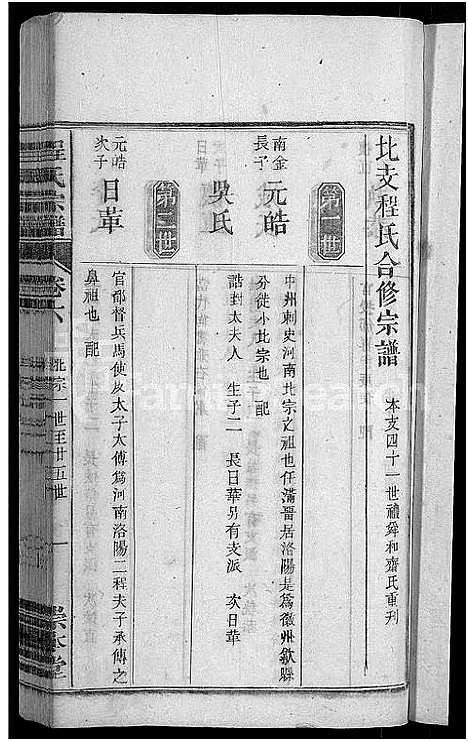 北支程氏合修宗譜 本支四十一世禮舜和齋氏重刋
第一世
南金長子 元皓
中州刺史河南北宗之祖也任蒲晉居洛陽是爲徽州歙縣
分徙小北宗也 配
吳氏
誥封太夫人 生子二 長日華另有支派 次日華
第二世
元皓次子 日華
官都督兵馬使及太子太傅爲河南洛陽二程夫子承傳之
鼻祖也 配
程氏宗譜 卷六 北宗一世至廿五世 一